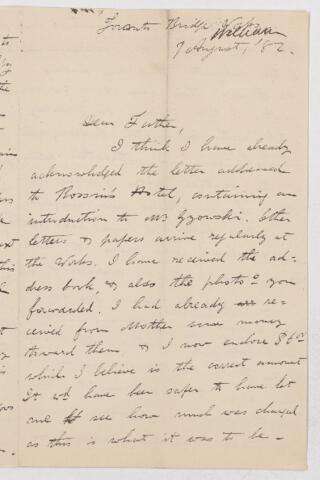 Toronto Bridge Works
William
9 August, '82.
Dear Father,
I think I have already
acknowledged the letter addressed
to Rossin's Hotel, containing an
introduction to Mr Gzowski. Other
letters & papers arrive regularly at
the Works. I have received the ad-
dress book, & also the photos you
forwarded. I had already re-
ceived from Mother some money
toward them, & I now enclose $6.00
which I believe is the correct amount
It wd have been safer to have let
me see how much was charged
as this is what it was to be-